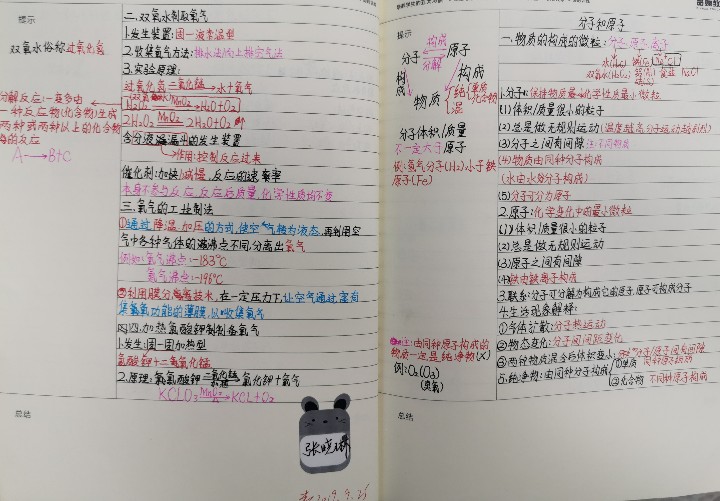 提示
双氧水俗称过氧化氢
分解反应:一变多由
一种反应物(化合物)生成
两种或两种以上的化合物
的反应
A→B+C
总结
二、双氧水制取氧气
1.发生装置:固-液常温型
2.收集氧气方法:排水法/向上排空气法
3.实验原理:
过氧化氢 二氧化锰 水+氧气
H2O2 MnO2 H2O+O2
2H2O2 MnO2 2H2O+O2↑
含分液漏斗的发生装置
作用:控制反应过来
催化剂:加快/减慢,反应的速率
本身不参与反应,反应后质量,化学性质均不变
三、氧气的工业制法
①通过降温加压的方式,使空气转为液态,再利用空
气中各种气体的沸点不同,分离出氧气
例如:氧气沸点:-183℃
氮气沸点:-196℃
②利用膜分离技术,在一定压力下,让空气通过,富有
集氧功能的薄膜,以收集氧气
四.加热氯酸钾制制备氧气
1.发生:固-固加热型
氯酸钾+二氧化锰
2.原理:氯酸钾 二氧化锰 氯化钾+氧气
KClO3 MnO2 KCl+O2
张晓琳
2019.9.25
提示
分子 构成 原子
分解
构成 构成
物质 纯 混
分子体积/质量
不一定大于原子
氢气分子(H2)小于铁
原子(Fe)
注:由同种原子构成的
物质一定是纯净物(×)
例:O2(O3)
(臭氧)
总结
分子和原子
一.物质的构成的微粒:分子 原子 离子
1.分子:保持物质最小化学性质最小微粒
(1)体积/质量很小的粒子
(2)总是做无规则运动(温度越高分运动越剧烈)
(3)分子之间有间隙
(4)物质由同种分子构成
(水由水分子构成)
(5)分子可分为原子
2.原子:化学变化中的最小微粒
(1)体积/质量很小的粒子
(2)总是做无规则运动
(3)原子之间有间隙
(4)铁由铁原子构成
3.联系:分子可分解为构成它的原子,原子可构成分子
4.生活现象解释:
①气体扩散:分子热运动
②物态变化:分子间间距变化
③两种物质混合后体积变小:分子/原子间有间隙
5.纯净物:由同种分子构成 ①单质 同种原子构成
②化合物 不同种原子构成